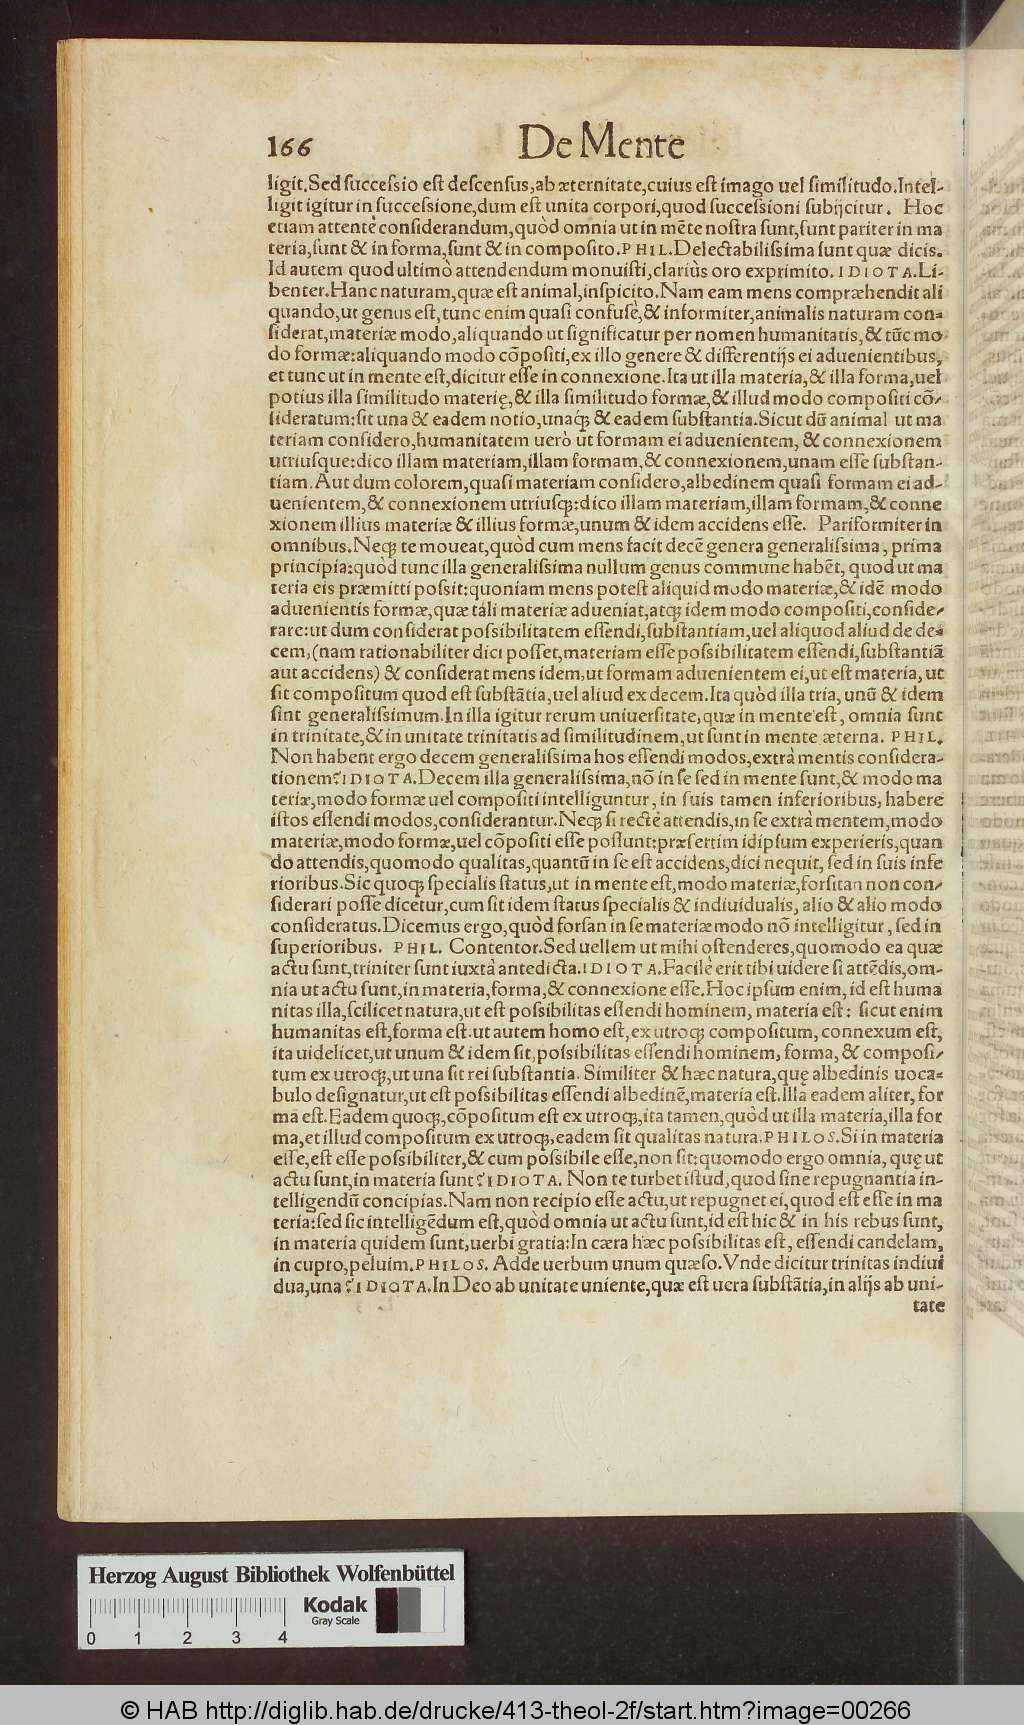 166 De Mente
ligit. Sed ſucceſsio eſt deſcenſus, ab æternitate, cuius eſt imago uel ſimilitudo. Intel-
ligit igitur in ſucceſsione, dum eſt unita corpori, quod ſucceſsioni ſubijcitur. Hoc
etiam attentè conſiderandum, quòd omnia ut in mēte noſtra ſunt, ſunt pariter in ma
teria, ſunt & in forma, ſunt & in compoſito. PHIL. Delectabiliſsima ſunt quæ dicis.
Id autem quod ultimò attendendum monuiſti, clariùs oro exprimito. IDIOTA. Li-
benter. Hanc naturam, quæ eſt animal, inſpicito. Nam eam mens compræhendit ali
quando, ut genus eſt, tunc enim quaſi confuſè, & informiter, animalis naturam con-
ſiderat, materiæ modo, aliquando ut ſignificatur per nomen humanitatis, & tūc mo
do formæ: aliquando modo cōpoſiti, ex illo genere & differentijs ei aduenientibus,
et tunc ut in mente eſt, dicitur eſſe in connexione. Ita ut illa materia, & illa forma, uel
potius illa ſimilitudo materię, & illa ſimilitudo formæ, & illud modo compoſiti cō-
ſideratum: ſit una & eadem notio, unaq́; & eadem ſubſtantia. Sicut dū animal ut ma
teriam conſidero, humanitatem uerò ut formam ei aduenientem, & connexionem
utriuſque: dico illam materiam, illam formam, & connexionem, unam eſſe ſubſtan-
tiam. Aut dum colorem, quaſi materiam conſidero, albedinem quaſi formam ei ad-
uenientem, & connexionem utriuſq;: dico illam materiam, illam formam, & conne
xionem illius materiæ & illius formæ, unum & idem accidens eſſe. Pariformiter in
omnibus. Neq; te moueat, quòd cum mens facit decē genera generaliſsima, prima
principia: quòd tunc illa generaliſsima nullum genus commune habēt, quod ut ma
teria eis præmitti poſsit: quoniam mens poteſt aliquid modo materiæ, & idē modo
aduenientis formæ, quæ tali materiæ adueniat, atq; idem modo compoſiti, conſide-
rare: ut dum conſiderat poſsibilitatem eſſendi, ſubſtantiam, uel aliquod aliud de de-
cem, (nam rationabiliter dici poſſet, materiam eſſe poſsibilitatem eſſendi, ſubſtantiā
aut accidens) & conſiderat mens idem, ut formam aduenientem ei, ut eſt materia, ut
ſit compoſitum quod eſt ſubſtātia, uel aliud ex decem. Ita quòd illa tria, unū & idem
ſint generaliſsimum. In illa igitur rerum uniuerſitate, quæ in mente eſt, omnia ſunt
in trinitate, & in unitate trinitatis ad ſimilitudinem, ut ſunt in mente æterna. PHIL.
Non habent ergo decem generaliſsima hos eſſendi modos, extrà mentis conſidera-
tionem? IDIOTA. Decem illa generaliſsima, nō in ſe ſed in mente ſunt, & modo ma
teriæ, modo formæ uel compoſiti intelliguntur, in ſuis tamen inferioribus, habere
iſtos eſſendi modos, conſiderantur. Neq; ſi rectè attendis, in ſe extrà mentem, modo
materiæ, modo formæ, uel cōpoſiti eſſe poſſunt: præſertim idipſum experieris, quan
do attendis, quomodo qualitas, quantū in ſe eſt accidens, dici nequit, ſed in ſuis infe
rioribus. Sic quoq; ſpecialis ſtatus, ut in mente eſt, modo materiæ, forſitan non con-
ſiderari poſſe dicetur, cum ſit idem ſtatus ſpecialis & indiuidualis, alio & alio modo
conſideratus. Dicemus ergo, quòd forſan in ſe materiæ modo nō intelligitur, ſed in
ſuperioribus. PHIL. Contentor. Sed uellem ut mihi oſtenderes, quomodo ea quæ
actu ſunt, triniter ſunt iuxtà antedicta. IDIOTA. Facilè erit tibi uidere ſi attēdis, om-
nia ut actu ſunt, in materia, forma, & connexione eſſe. Hoc ipſum enim, id eſt huma
nitas illa, ſcilicet natura, ut eſt poſsibilitas eſſendi hominem, materia eſt: ſicut enim
humanitas eſt, forma eſt. ut autem homo eſt, ex utroq; compoſitum, connexum eſt,
ita uidelicet, ut unum & idem ſit, poſsibilitas eſſendi hominem, forma, & compoſi-
tum ex utroq;, ut una ſit rei ſubſtantia. Similiter & hæc natura, quę albedinis uoca-
bulo deſignatur, ut eſt poſsibilitas eſſendi albedinē, materia eſt. Illa eadem aliter, for
ma eſt. Eadem quoq;, cōpoſitum eſt ex utroq;, ita tamen, quòd ut illa materia, illa for
ma, et illud compoſitum ex utroq;, eadem ſit qualitas natura. PHILOS. Si in materia
eſſe, eſt eſſe poſsibiliter, & cum poſsibile eſſe, non ſit: quomodo ergo omnia, quę ut
actu ſunt, in materia ſunt? IDIOTA. Non te turbet iſtud, quod ſine repugnantia in-
telligendū concipias. Nam non recipio eſſe actu, ut repugnet ei, quod eſt eſſe in ma
teria: ſed ſic intelligēdum eſt, quòd omnia ut actu ſunt, id eſt hic & in his rebus ſunt,
in materia quidem ſunt, uerbi gratia: In cæra hæc poſsibilitas eſt, eſſendi candelam,
in cupro, peluim. PHILOS. Adde uerbum unum quæſo. Vnde dicitur trinitas indiui
dua, una? IDIOTA. In Deo ab unitate uniente, quæ eſt uera ſubſtātia, in alijs ab uni-
tate
Herzog August Bibliothek Wolfenbüttel
Kodak
Gray Scale
0 1 2 3 4
© HAB http://diglib.hab.de/drucke/413-theol-2f/start.htm?image=00266